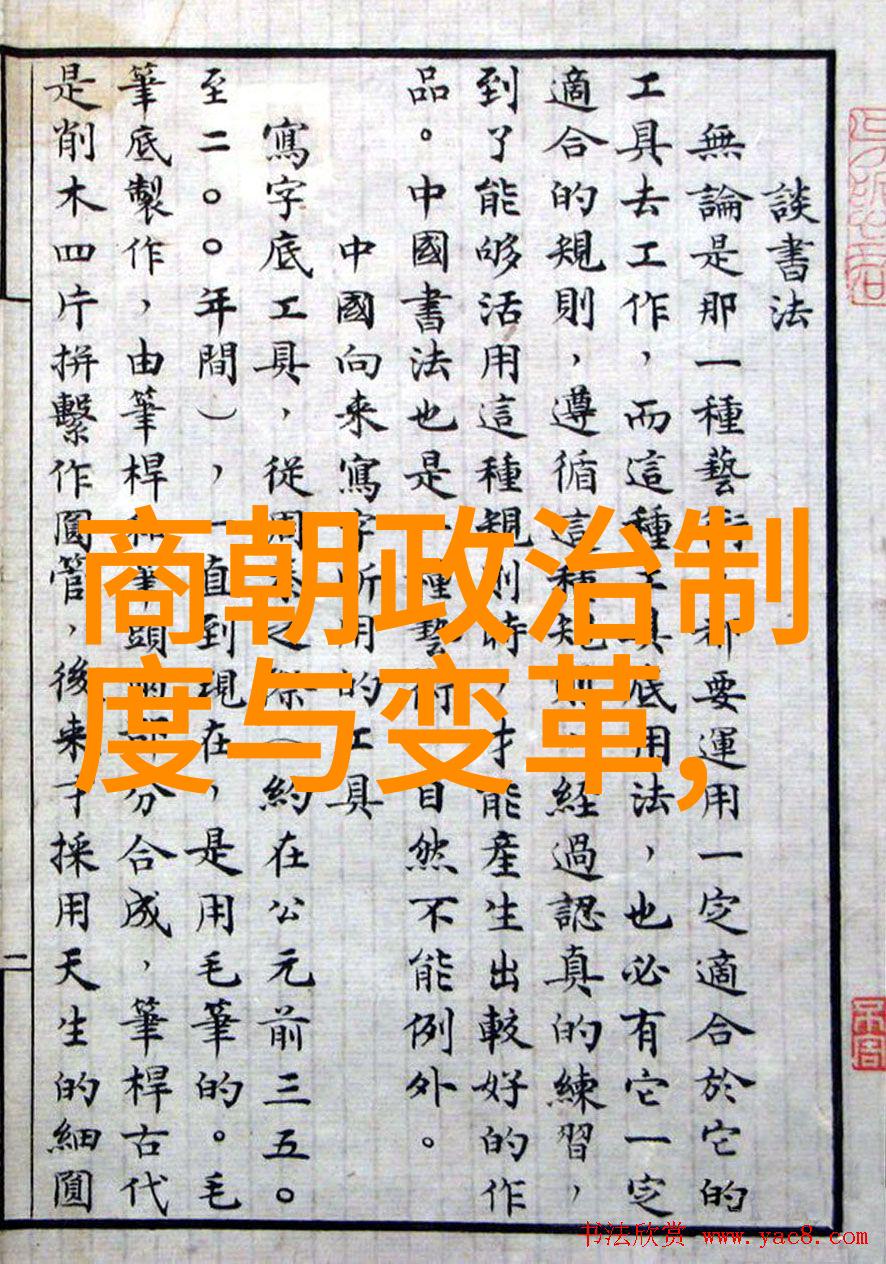 談書法
無論是那一種藝術，都要運用一定適合於它的
工具去工作，而這種工具底用法，也必有它一定
適合的規則，遵循這種規則，經過認真的練習，
到了能够活用這種規則時，才能產生出較好的作
品。中國書法也是一種藝術，自然不能例外。
中國向来寫字所用的工具
寫字底工具，從周秦之際（約在公元前三五〇
至二〇〇年間），一直到現在，是用毛筆的。毛
筆底製作，由筆桿和筆頭兩部分合成，筆桿古代
是削木四片拼繫作圓管，後来才採用天生的細圓
二
商朝政治制
度与变革,
书法欣赏 www.yac8.com